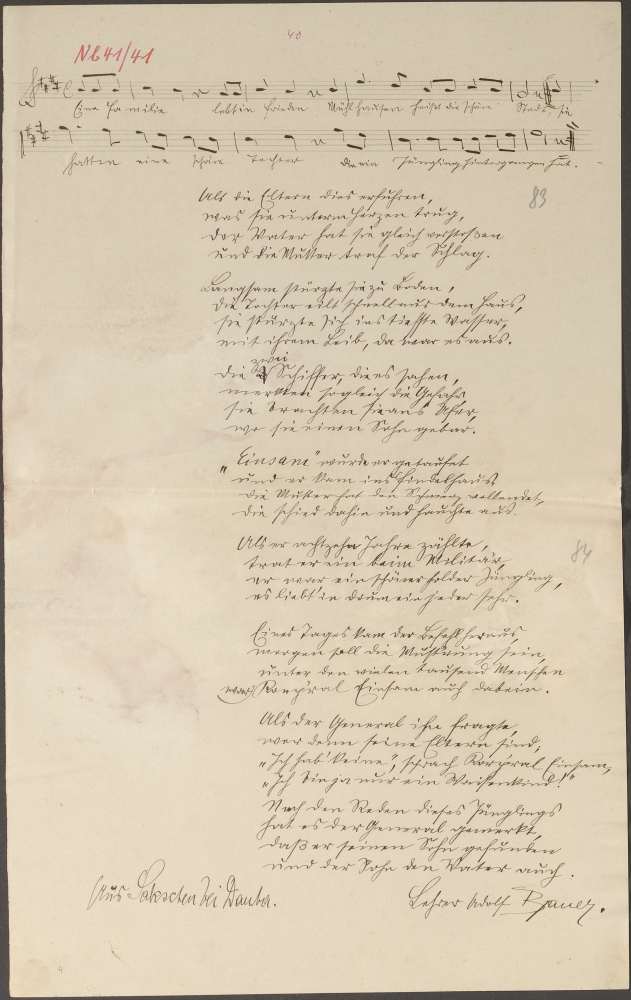 40
NB 41/41
Eine Familie lebt in Frieden Mühlhausen heißt die schöne Stadt, sie
hatten eine schöne Tochter die ein Jüngling hintergangen hat.
83
Als die Eltern dies erfuhren,
was sie unterm Herzen trug,
der Vater hat sie gleich verstoßen
und die Mutter traf der Schlag.
Langsam stürzte sie zu Boden,
die Tochter eilt schnell aus dem Haus,
sie stürzte sich ins tiefste Wasser,
mit ihrem Leib, da war es aus.
zwei
Die Schiffer, die es sahen,
merkten sogleich die Gefahr,
sie brachten sie ans Ufer,
wo sie einen Sohn gebar.
"Einsam" wurde er getaufet
und er kam ins Findelhaus
die Mutter hat den Schmerz vollendet,
die schied dahin und hauchte aus.
Als er achtzehn Jahre zählte,
84
trat er ein beim Militär,
er war ein schöner holder Jüngling,
es liebt' in drum ein jeder sehr.
Eines Tages kam der Befehl heraus,
morgen soll die Musterung sein,
unter den vielen tausend Menschen
war Korpral Einsam auch dabein.
Als der General ihn fragte,
wer denn seine Eltern sind,
"Ich hab' keine", sprach Korpral Einsam,
"Ich bin ja nur ein Waisenkind!"
Nach den Reden dieses Jünglings
hat es der General gemerkt,
daß er seinen Sohn gefunden
und der Sohn den Vater auch.
Aus Sakschen bei Dauba.
Lehrer Adolf